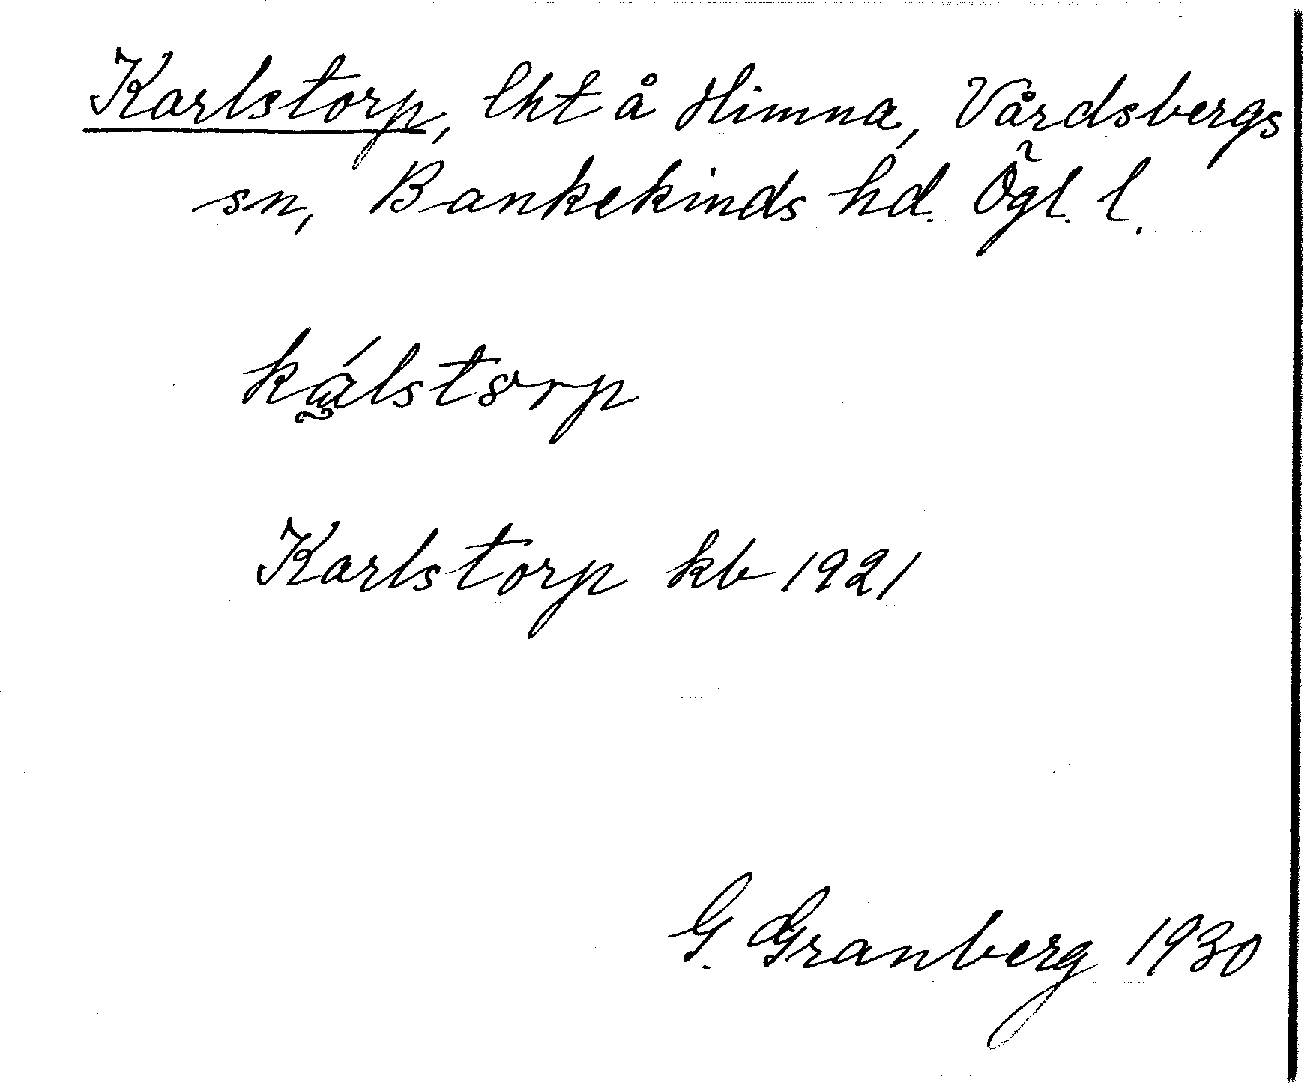 Karlstorp, lht å Himna, Vårdsbergs
sn, Bankekinds hd. Ögl. l.
kálstorp
Karlstorp kb 1921
G. Granberg 1930